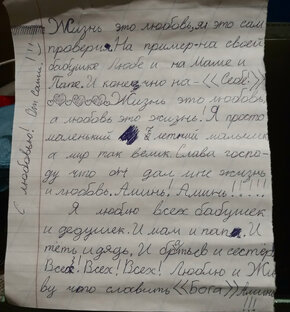 Жизнь это любовь, я это сам
проверил. На пример-на своей
бабушке Любе и на Маше и
Папе. И конечно на-<<Себе:>>
Жизнь это любовь,
а любовь это жизнь. Я просто
маленький й летний мальчик
а мир так велик. Слава госпо-
ду что он дал мне жизнь
и любовь. Аминь! Аминь!!!!!
Я люблю всех бабушек
и дедушек. И мам и пап. И
теть и дядь. И братьев и сестёр.
Всех! Всех! Всех! Люблю и Жи
ву что славить <<Бога>> Аминь
С любовью! От Саши!!!